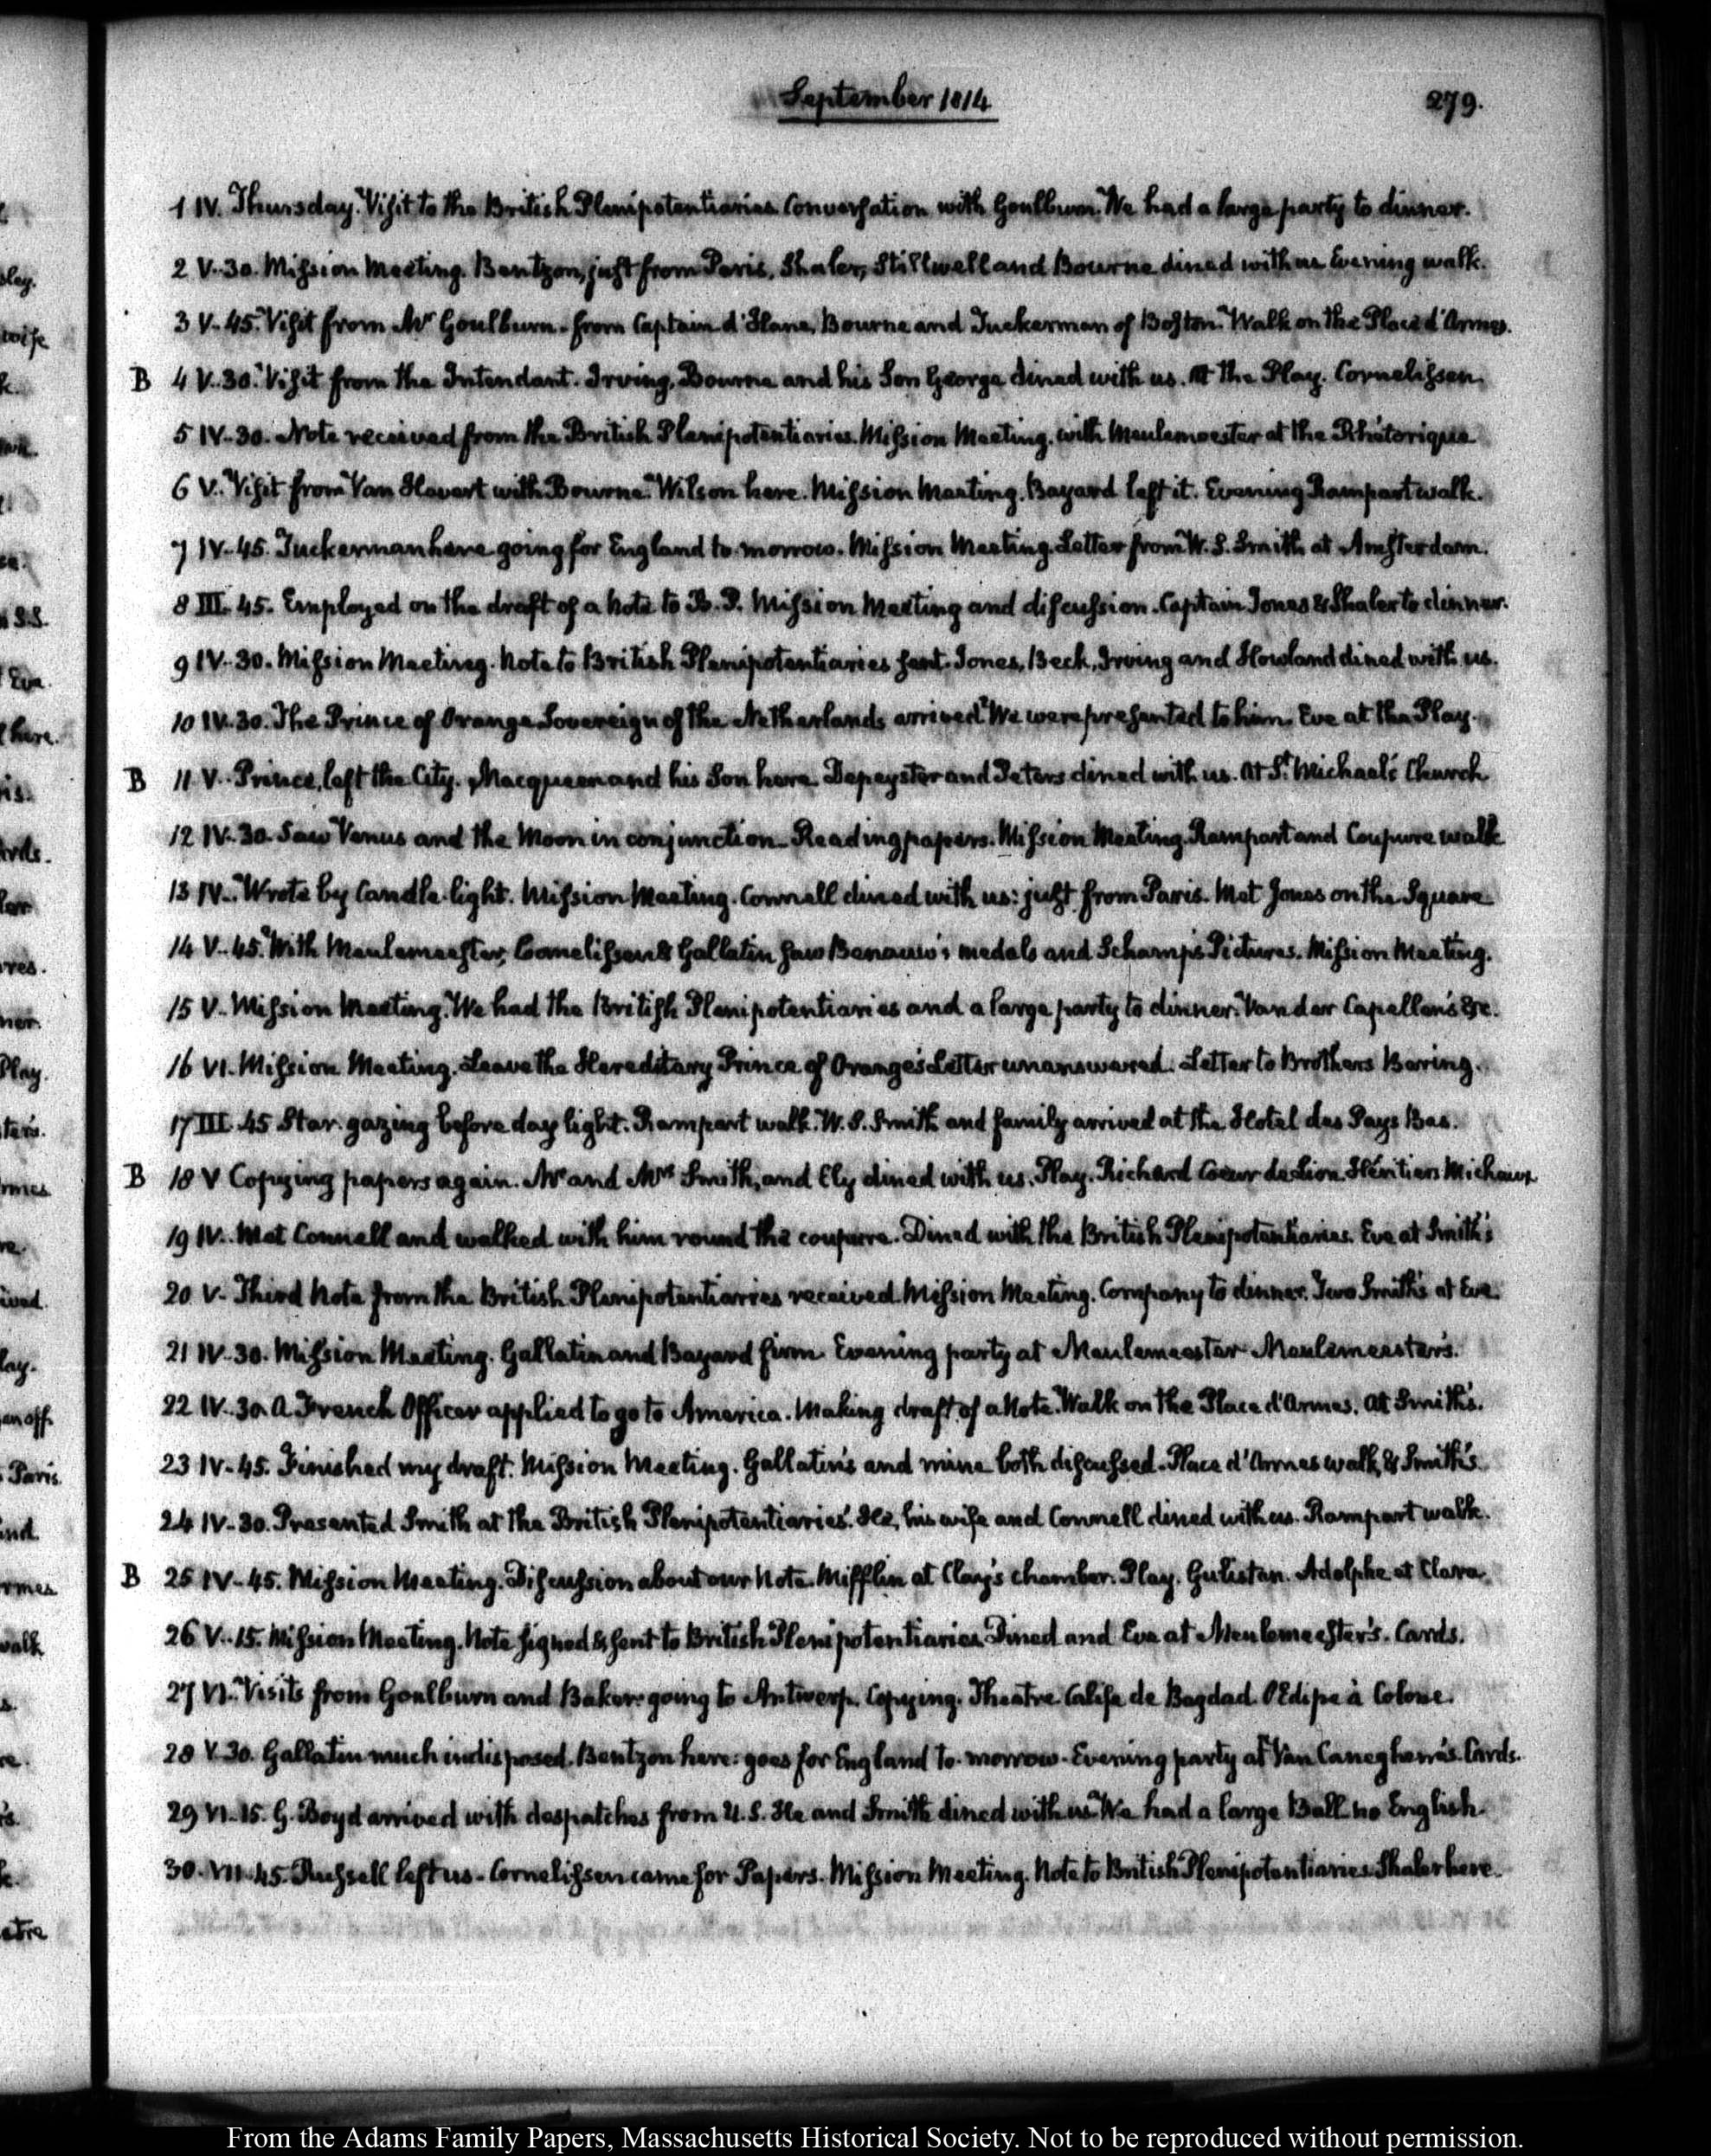 September 1814
279.
1 IV. Thursday. Visit to the British Plenipotentiaries Conversation with Goulburn. We had a large party to dinner.
2 V..30. Mission Meeting. Bentzon, just from Paris, Shaler, Stillwell and Bourne dined with us Evening walk.
3 V..45. Visit from Mr Goulburn. from Captain d'Hane, Bourne and Tuckerman of Boston. Walk on the Place d'Armes.
B 4 V..30. Visit from the Intendant. Irving, Bourne and his Son George dined with us. At the Play. Cornelissen.
5 IV..30. Note received from the British Plenipotentiaries. Mission Meeting. with Meulemeester at the Rhétorique
6 V.. Visit from Van Havert with Bourne. Wilson here. Mission Meeting. Bayard left it. Evening Rampart walk.
7 IV..45. Tuckerman here going for England to-morrow. Mission Meeting. Letter from W. S. Smith at Amsterdam.
8 III. 45. Employed on the draft of a Note to B. P. Mission Meeting and discussion. Captain Jones & Shaler to dinner.
9 IV..30. Mission Meeting. Note to British Plenipotentiaries sent. Jones, Beck, Irving and Howland dined with us.
10 IV.30. The Prince of Orange Sovereign of the Netherlands arrived. We were presented to him. Eve at the Play.
B 11 V.. Prince, left the City. Macqueen and his Son here. Depeyster and Peters dined with us. At St. Michael's Church
12 IV..30. Saw Venus and the Moon in conjunction. Reading papers. Mission Meeting. Rampart and Coupure walk
13 IV.. Wrote by Candle-light. Mission Meeting. Connell dined with us: just from Paris. Met Jones on the Square
14 V..45. With Meulemeester, Cornelissen & Gallatin saw Benauw's medals and Schamp's Pictures. Mission Meeting.
15 V.. Mission Meeting. We had the British Plenipotentiaries and a large party to dinner. Van der Capellen's &c.
16 VI. Mission Meeting. Leave the Hereditary Prince of Orange's Letter unanswered. Letter to Brothers Baring.
17 III. 45 Star-gazing before day light. Rampart walk. W. S. Smith and family arrived at the Hotel des Pays Bas.
B 18 V Copying papers again. Mr and Mrs Smith, and Ely dined with us. Play. Richard Coeur de Lion. Héritiers Michaux
19 IV.. Met Connell and walked with him round the coupure. Dined with the British Plenipotentiaries. Eve at Smith's
20 V.. Third Note from the British Plenipotentiaries received. Mission Meeting. Company to dinner. Two Smith's at Eve.
21 IV..30. Mission Meeting. Gallatin and Bayard firm. Evening party at Meulemeester Meulemeester's.
22 IV..30. A French Officer applied to go to America. Making draft of a Note. Walk on the Place d'Armes. At Smith's.
23 IV..45. Finished my draft. Mission Meeting. Gallatin's and mine both discussed. Place d'Armes walk, & Smith's.
24 IV..30. Presented Smith at the British Plenipotentiaries'. He, his wife and Connell dined with us. Rampart walk.
B 25 IV..45. Mission Meeting. Discussion about our Note. Mifflin at Clay's chamber. Play. Gulistan. Adolphe et Clara.
26 V..15. Mission Meeting. Note signed & sent to British Plenipotentiaries. Dined and Eve at Meulemeester's. Cards.
27 VI.. Visits from Goulburn and Baker: going to Antwerp. Copying. Theatre Calife de Bagdad. OEdipe à Colone.
28 V.30. Gallatin much indisposed. Bentzon here: goes for England to-morrow. Evening party at Van Caneghem's. Cards.
29 VI..15. G. Boyd arrived with despatches from U.S. He and Smith dined with us. We had a large Ball no English.
30. VII..45. Russell left us. Cornelissen came for Papers. Mission Meeting. Note to British Plenipotentiaries Shaler here.
From the Adams Family Papers, Massachusetts Historical Society. Not to be reproduced without permission.